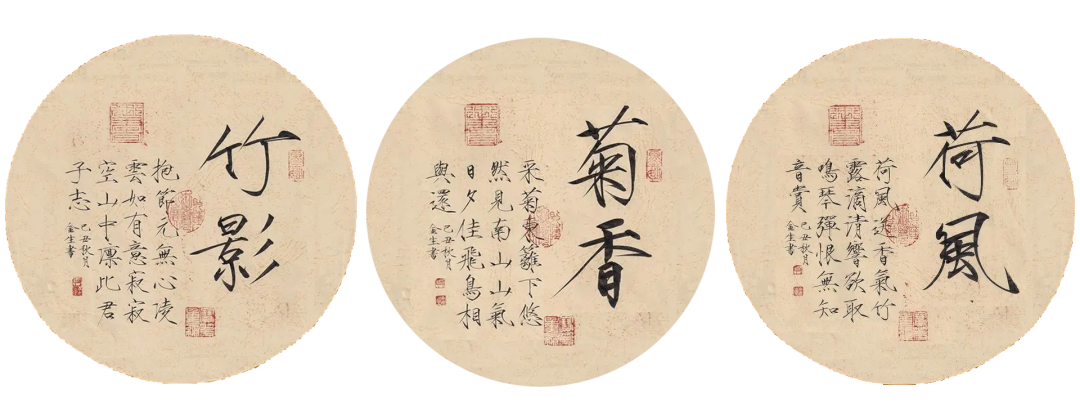 竹影
抱節元無心陵
雲如有意寂寂
空山中凛此君
子志
己丑秋月
金生書
菊香
采菊東籬下悠
然見南山山氣
日夕佳飛鳥相
與還
己丑秋月
金生書
荷風
荷風送香氣竹
露滴清響欲取
鳴琴彈恨無知
音賞
己丑秋月
金生書